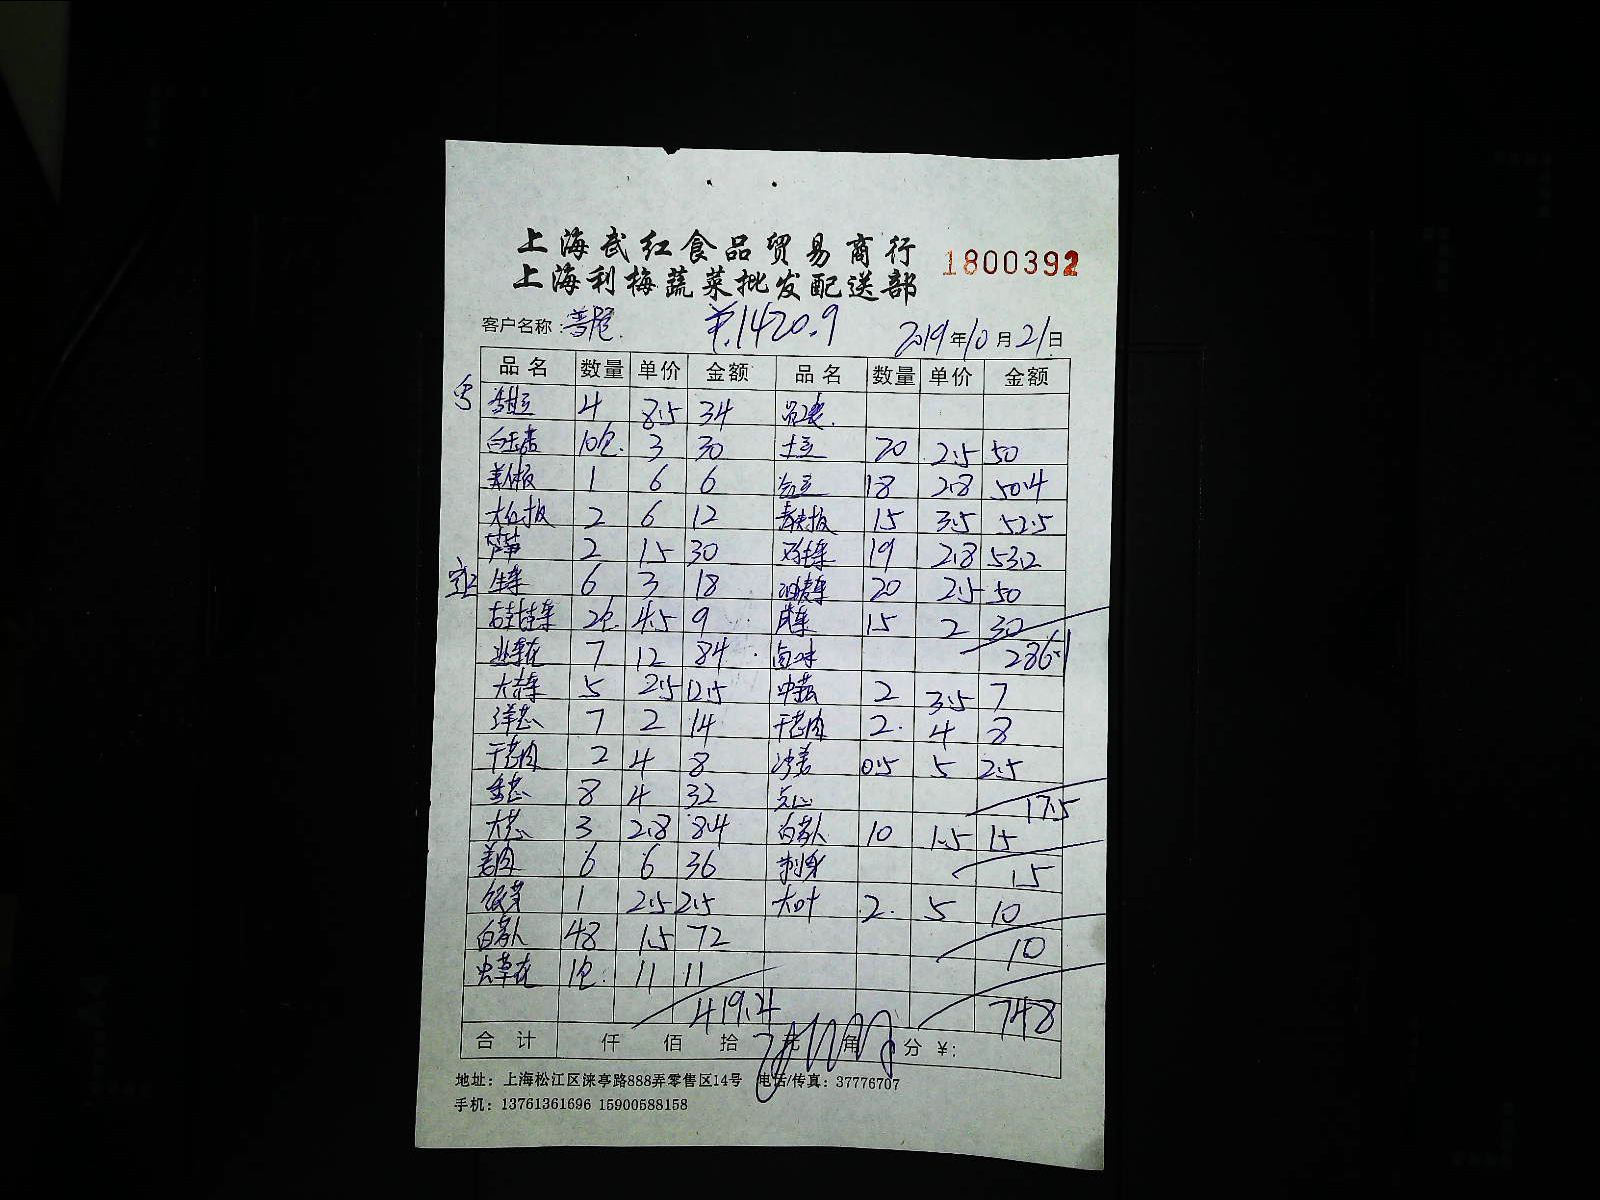 上海武红食品贸易商行
上海利梅蔬菜批发配送部
1800392
客户名称: ¥1420.9 2019年10月21日
品名 数量 单价 金额 品名 数量 单价 金额
4 8.5 34
10包 3 30 土豆 20 2.5 50
美人椒 1 6 6 18 2.8 50.4
大红椒 2 6 12 青尖椒 15 3.5 52.5
芦笋 2 15 30 19 2.8 53.2
生菜 6 3 18 油麦菜 20 2.5 50
2包 4.5 9 15 2 30
7 12 84 卤味 286.1
5 2.5 12.5 中芹 2 3.5 7
洋葱 7 2 14 干葱肉 2 4 8
干葱肉 2 4 8 沙姜 0.5 5 2.5
香葱 8 4 32 点心 17.5
大葱 3 2.8 8.4 白萝卜 10 1.5 15
姜肉 6 6 36 刺身 15
银芽 1 2.5 2.5 大叶 2 5 10
白萝卜 48 1.5 72 10
虫草花 1包 11 11
419.4 748
合计 仟 佰 拾 元 角 分 ¥:
地址: 上海松江区涞亭路888弄零售区14号 电话/传真: 37776707
手机: 13761361696 15900588158